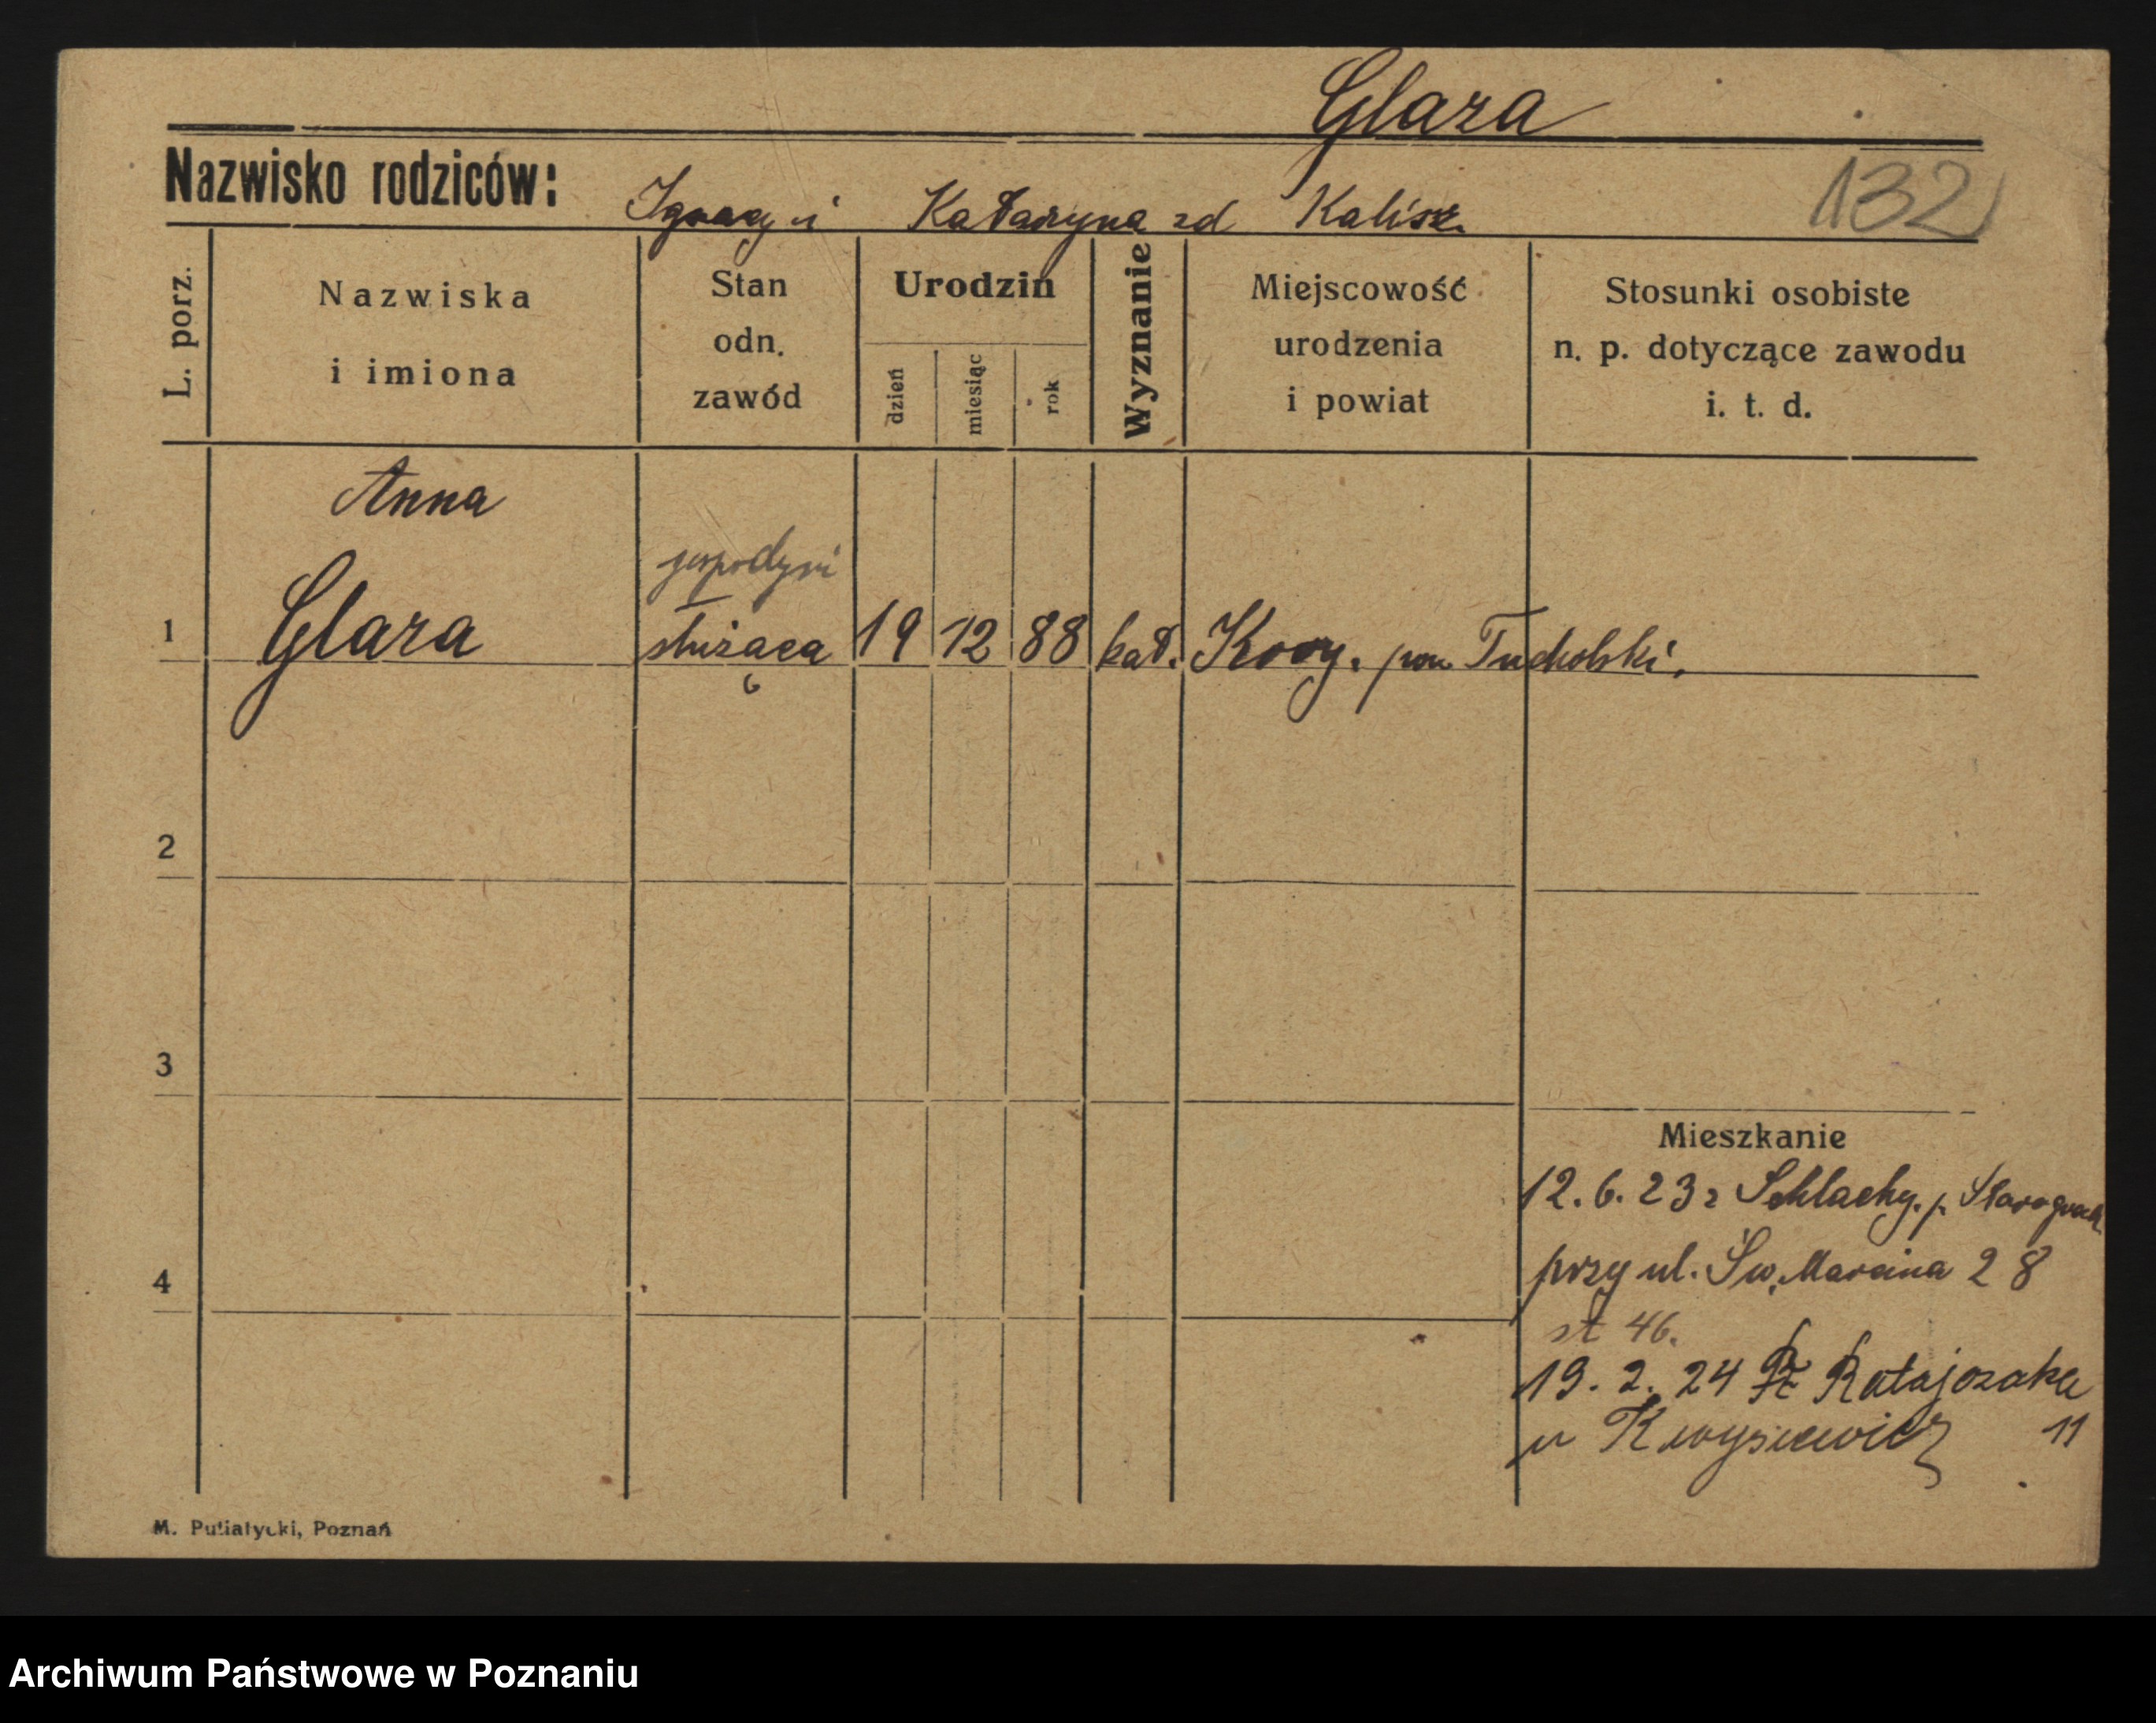 Glaza
Nazwisko rodziców: Ignacy i Katarzyna zd Kalisz.
132
L. porz.
Nazwiska
i imiona
Stan
odn.
zawód
Urodzin
dzień
miesiąc
rok
Wyznanie
Miejscowość
urodzenia
i powiat
Stosunki osobiste
n. p. dotyczące zawodu
i. t. d.
Anna
gospodyni
1 Glaza służąca 19 12 88 kat. pow Tucholski.
2
3
Mieszkanie
12. 6. 23 z p.
4
przy ul. Św. Marcina 28
st 46.
19. 2. 24 Ratajczaka
u 11
M. Putiatycki, Poznań
Archiwum Państwowe w Poznaniu